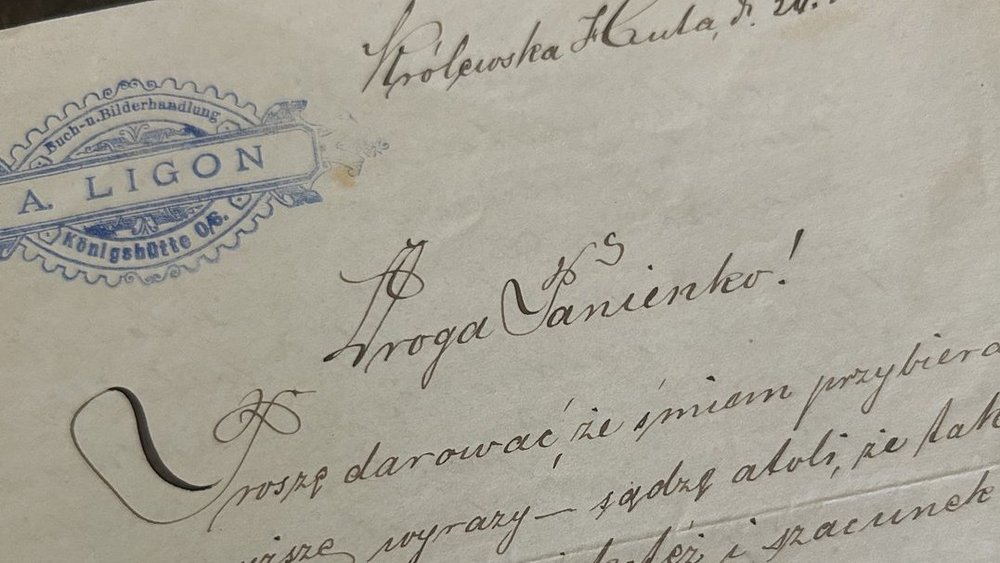 Królewska Huta, d. 24.
Buch-u.Bilderhandlung
A. LIGON
Königshütte O/S.
Droga Panienko!
Proszę darować, że śmiem przybiera
wyrazy — sądzę atoli, że tak
też i szacunek